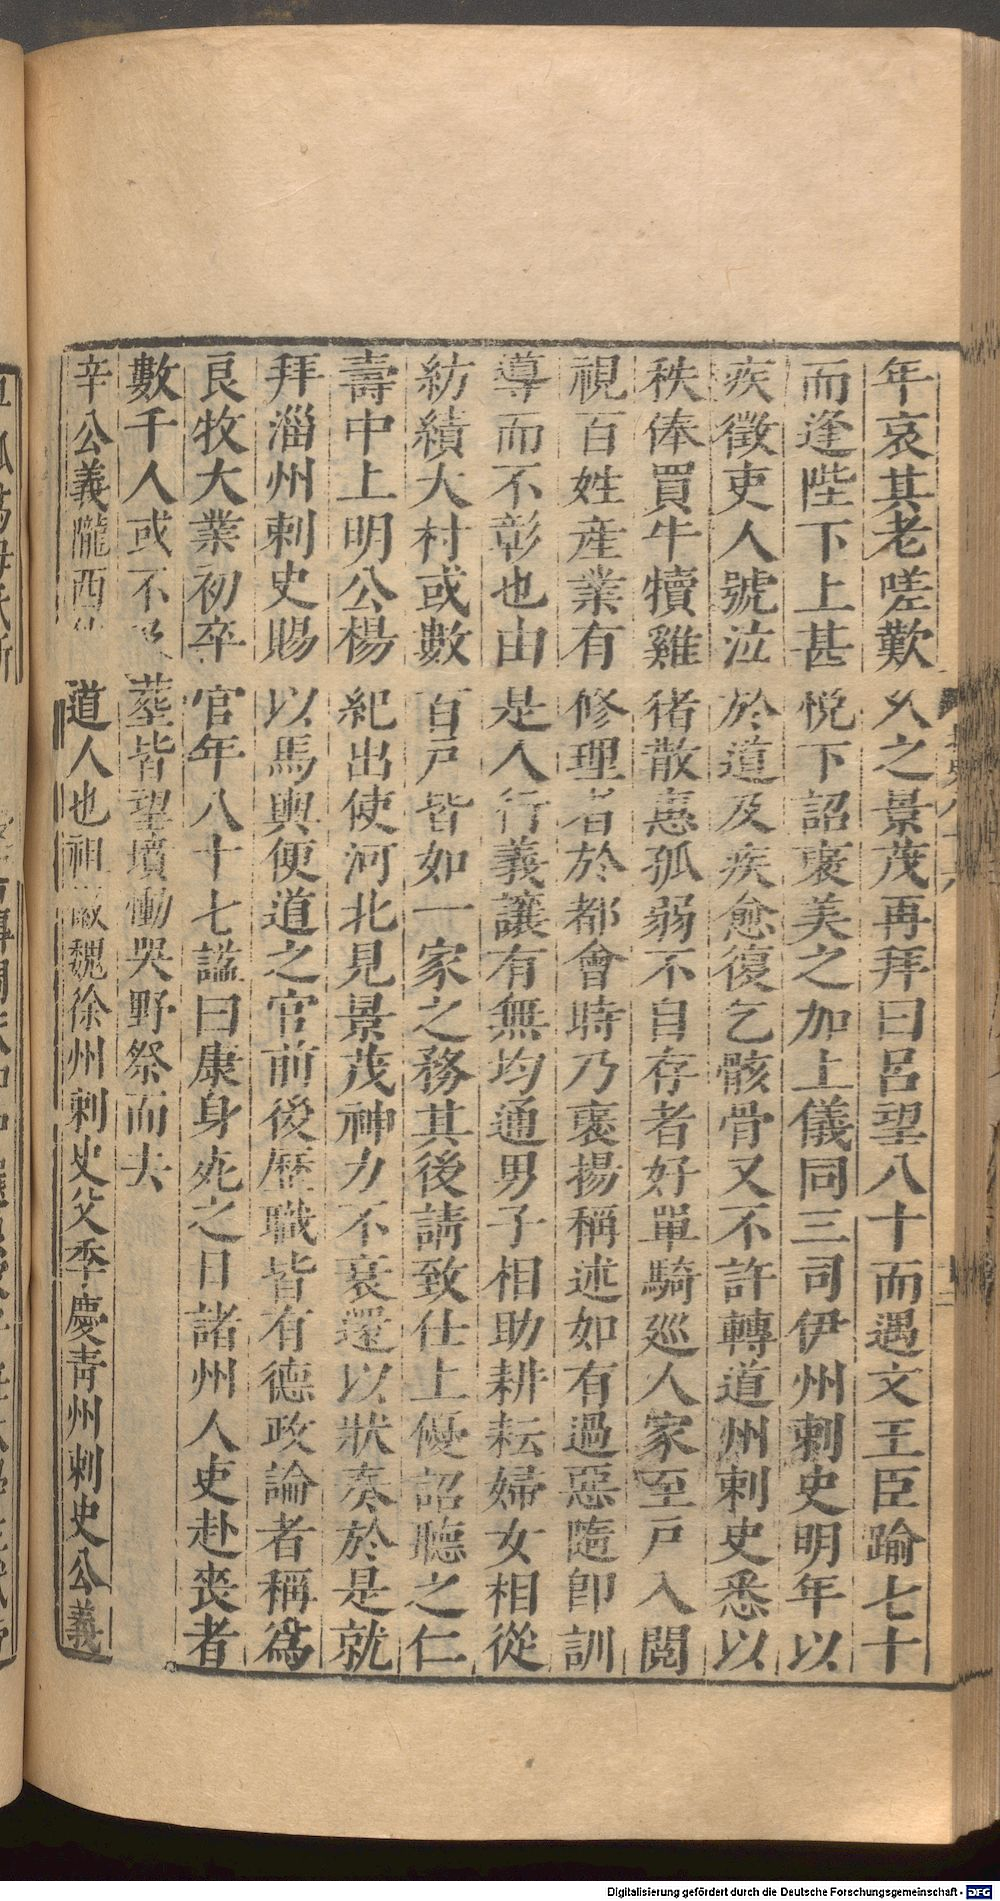 年哀其老嗟歎久之景茂再拜曰呂望八十而遇文王臣踰七十
而逢陛下上甚悅下詔褒美之加上儀同三司伊州刺史明年以
疾徵吏人號泣於道及疾愈復乞骸骨又不許轉道州刺史悉以
秩俸買牛犢雞猪散惠孤弱不自存者好單騎巡人家至戶入閱
視百姓產業有修理者於都會時乃褒揚稱述如有過惡隨卽訓
導而不彰也由是人行義讓有無均通男子相助耕耘婦女相從
紡績大村或數百戶皆如一家之務其後請致仕上優詔聽之仁
壽中上明公楊紀出使河北見景茂神力不衰還以狀奏於是就
拜淄州刺史賜以馬輿便道之官前後歷職皆有德政論者稱爲
良牧大業初卒官年八十七諡曰康身死之日諸州人吏赴喪者
數千人或不及葬皆望墳慟哭野祭而去
辛公義隴西道人也祖徽魏徐州刺史父季慶靑州刺史公義
Digitalisierung gefördert durch die Deutsche Forschungsgemeinschaft - DFG